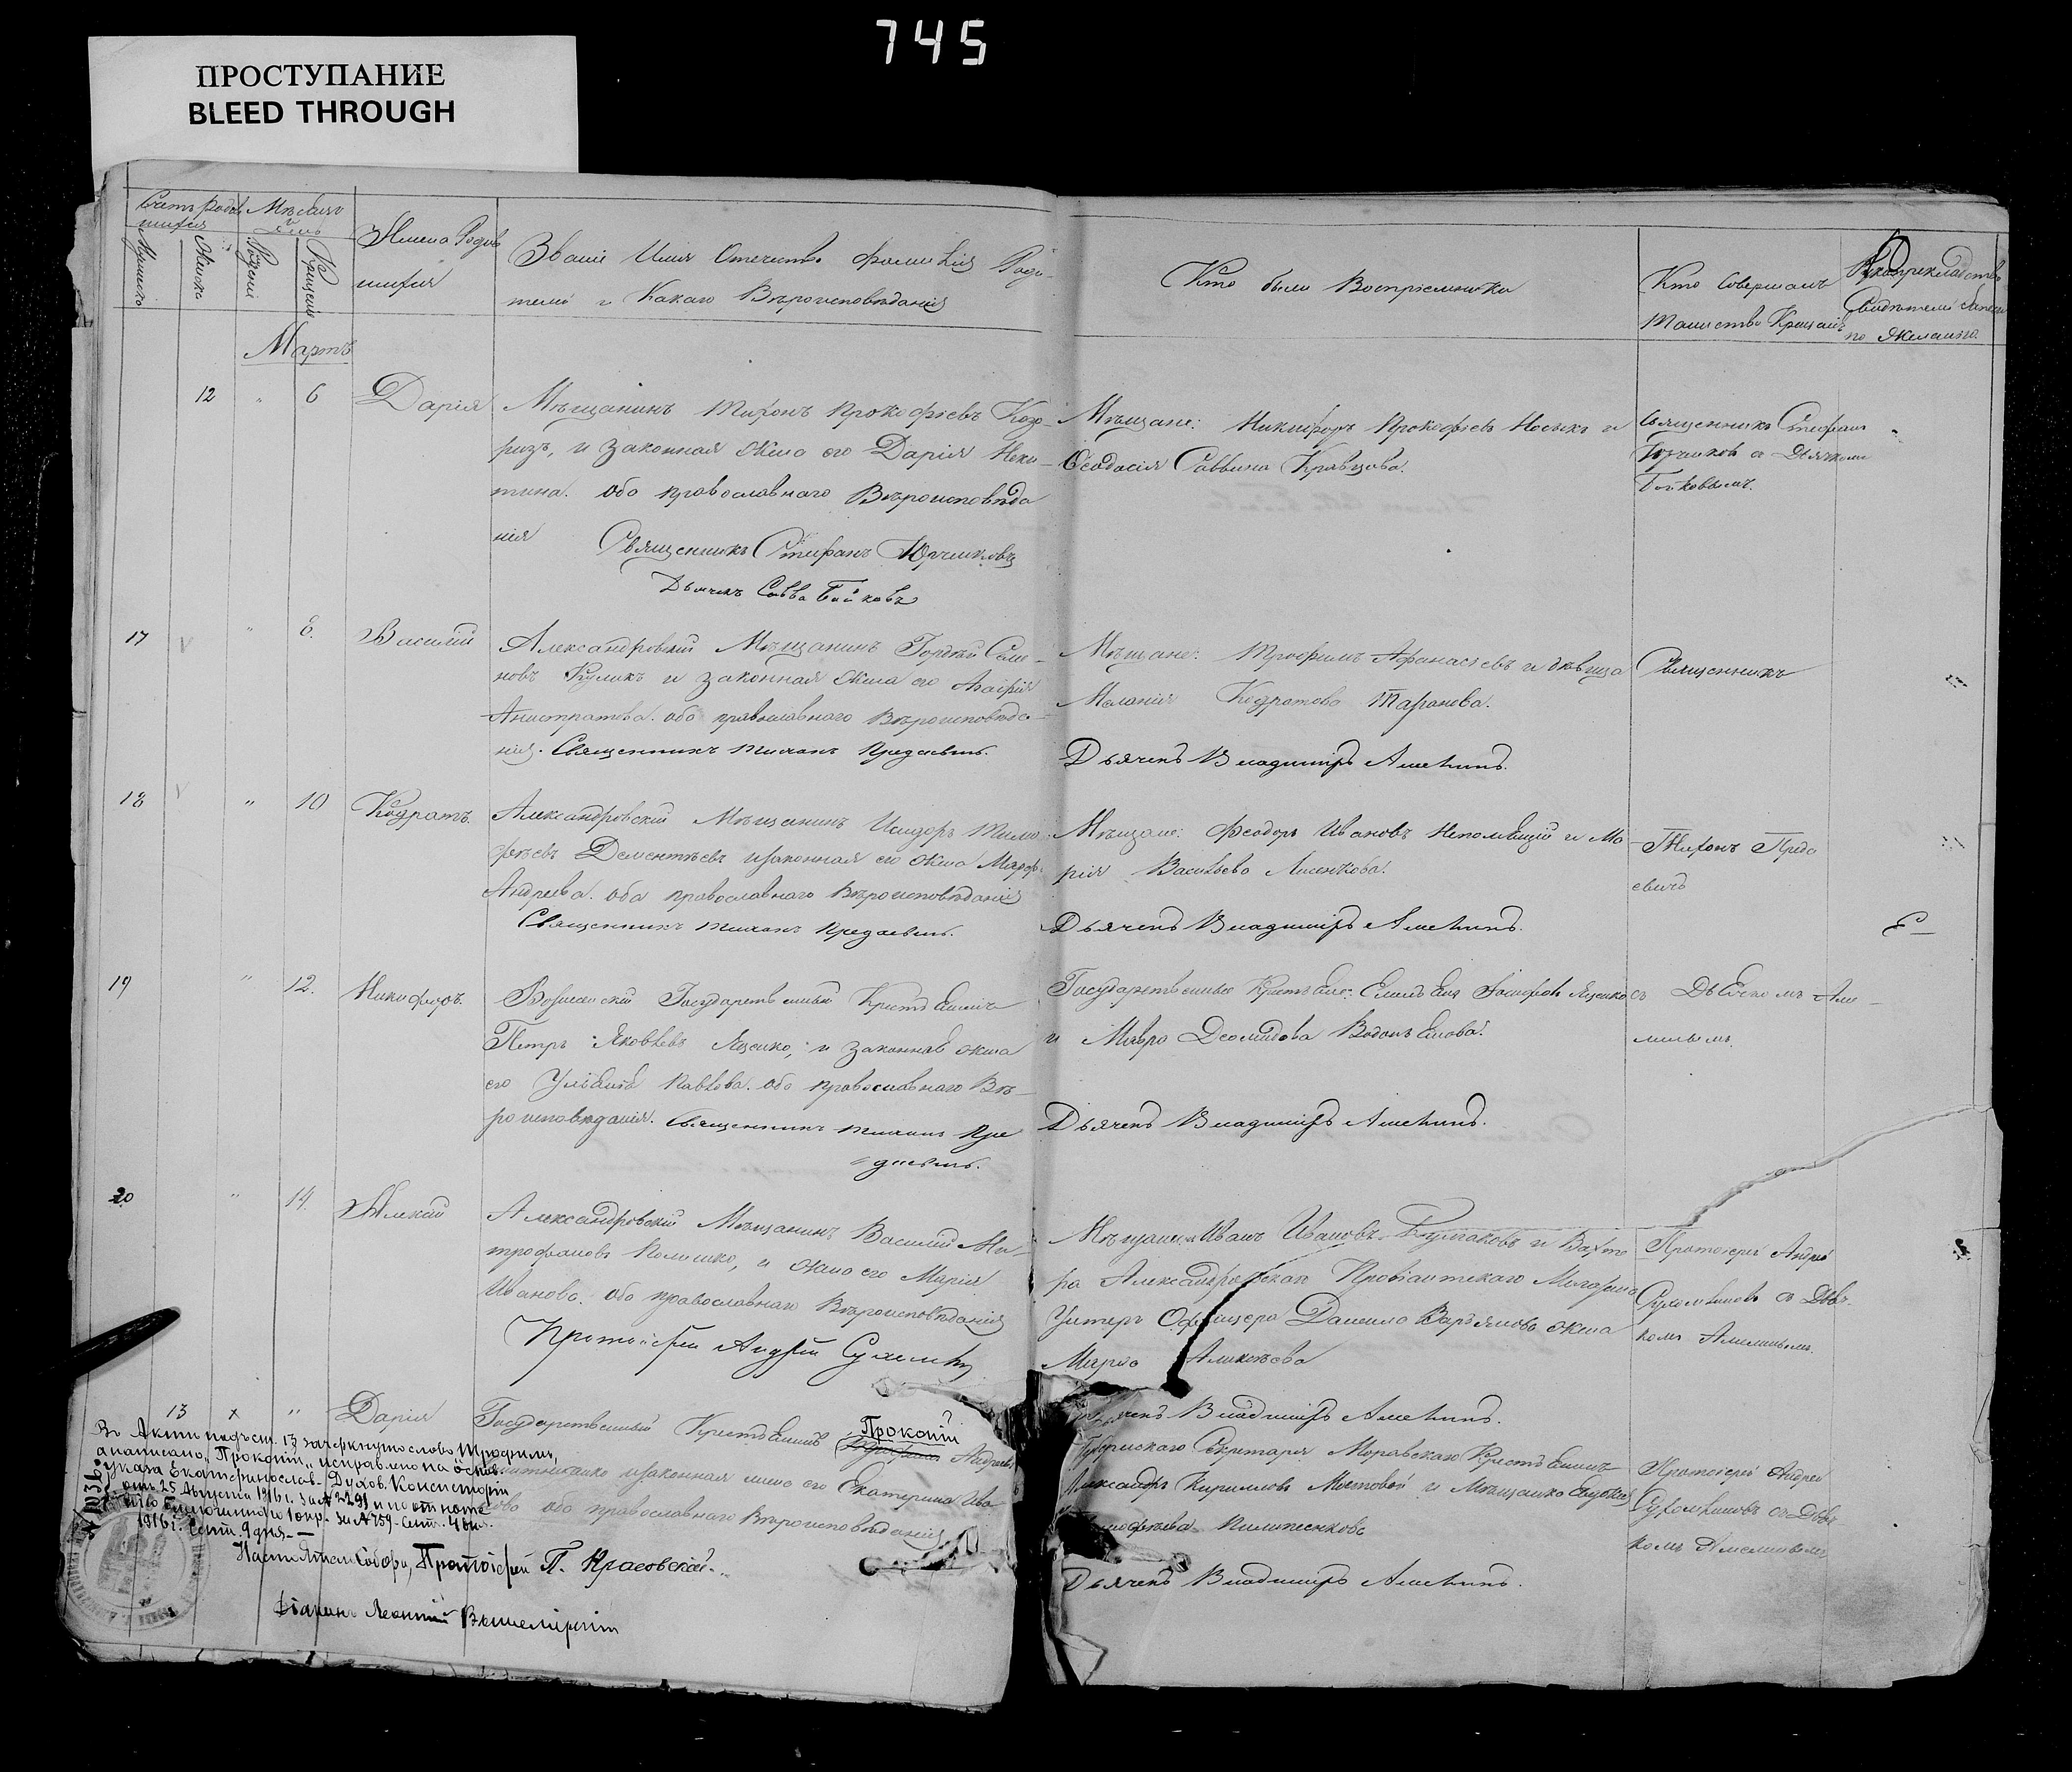 745
ПРОСТУПАНИЕ
BLEED THROUGH
Счетъ родив
шихся
Мѣсяцъ
и
день
Мужеска
Женска
Рождения
Крещения
Имена Родив
шихся
Званіе Имя Отечество Фамилія Роди-
телей и Какаго Вѣроисповѣданія
Кто были Воспріемники
Кто Совершалъ
Таинство Крещенія
по желанію.
Мартъ
12 " 6 Дарія
Мѣщанинъ Тихонъ Прокофіевъ Козо-
ризъ, и законная жена его Дарія Ники-
тина. оба православнаго Вѣроисповѣда
нія
Священникъ Стефанъ Юрченковъ
Дьячекъ Савва Бойковъ
Мѣщане: Никифоръ Прокофьевъ Носыкъ и
Ѳеодосія Саввина Кравцова.
Священникъ Стефанъ
Юрченковъ съ Дьячкомъ
Бойковымъ.
17 " 8. Василій
Александровскій Мѣщанинъ Гордѣй Семе-
новъ Куликъ и законная жена его Агафія
Анистратова. оба православнаго Вѣроисповѣда-
нія. Священникъ Тихонъ Предаевичъ.
Мѣщане: Трофимъ Афанасіевъ и дѣвица
Меланія Кодратова Таранова.
Дьяченъ Владиміръ Амелинъ.
Священникъ
18 " 10 Кодратъ.
Александровскій Мѣщанинъ Исидоръ Тимо-
фѣевъ Дементѣевъ изаконная его жена Марфа
Андреева. оба православнаго Вѣроисповѣданія
Священникъ Тихонъ Предаевичъ.
Мѣщане: Феодоръ Ивановъ Непомнящій и Ма-
рія Васильева Лисенкова.
Дьяченъ Владиміръ Амелинъ.
Тихонъ Преда
евичъ
19 " 12. Никифоръ.
Вознесенскій Государственный Крестьянинъ
Петръ Яковлевъ Яценко, и законная жена
его Ульяна Павлова. оба православнаго Вѣ-
роисповѣданія. Священникъ Тихонъ Пре
даевичъ.
Государственные Крестьяне: Емельянъ Яценко
и Мавра Деомидова
Дьяченъ Владиміръ Амелинъ.
съ Дьячкомъ Аме-
линымъ.
20 " 14. Алексій
Александровскій Мѣщанинъ Василій Ми-
трофановъ, и жена его Марія
Иванова. оба православнаго Вѣроисповѣданія
Протоіерей Андрей
Мѣщане: Иванъ Ивановъ Булгаковъ и Вахте
ра Александровскаго Провіантскаго Магазина
Унтеръ Офицера Даніила жена
Марѳа Алексѣева
Дьяченъ Владиміръ Амелинъ.
Протоіерей Андрей
съ Дьяч-
комъ Амелинымъ.
13 х " Дарія
Государственный Крестьянинъ Прокопій Андреевъ
изаконная жена его Екатерина Ива
нова оба православнаго Вѣроисповѣданія
Губернскаго Секретаря Моравскаго Крестьянинъ
Александръ Кирилловъ Мостовой и Мѣщанка Евдокія
Тимофѣева
Дьяченъ Владиміръ Амелинъ.
Протоіерей Андрей
съ Дьяч
комъ Амелинымъ
Въ Актѣ подъ ст. 13 зачеркнуто слово Трофимъ,
а написано „Прокопій" исправлено на основ.
указа Екатеринослав. Духов. Консисторіи
отъ 25 Августа 1916 г. за № 22291 и по отноше
нію Благочиннаго 1 окр. за № 759 – Сент. 4 дня.
1916 г. Сент. 9 дня.
№ 1036
Настоятель Собора, Протоіерей П. Красовскій
Діаконъ Леонтій Вышемірскій